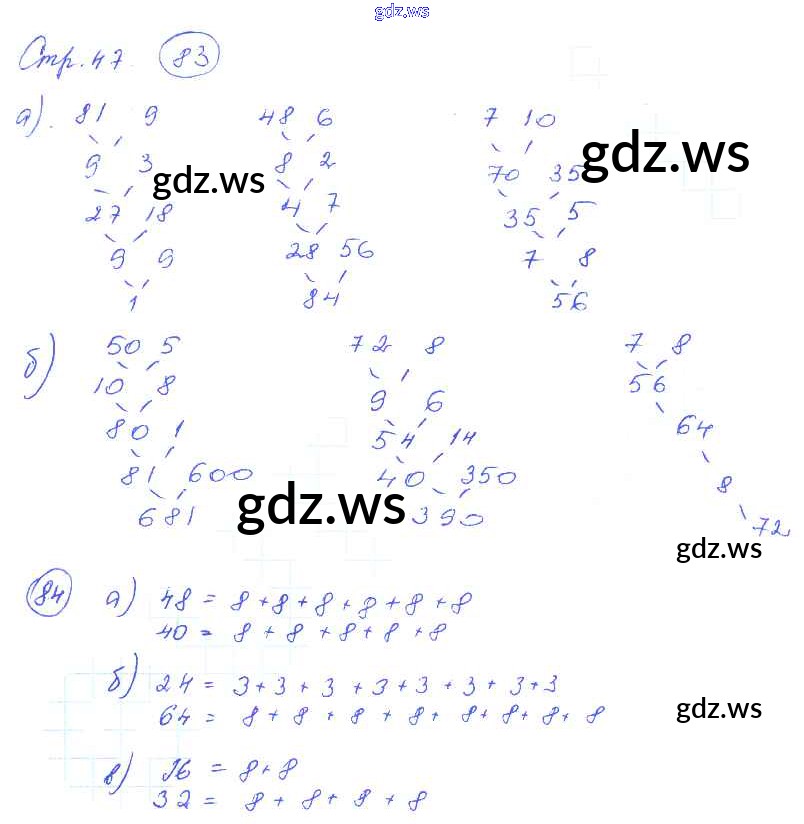 gdz.ws
Стр. 47. 83
а). 81 9 48 6 7 10
9 3 8 2 70 35
gdz.ws gdz.ws
27 18 4 7 35 5
9 9 28 56 7 8
1 84 56
б) 50 5 72 8 7 8
10 8 9 6 56
80 1 54 14 64
81 600 40 350 8
681 gdz.ws 390 72
gdz.ws
84 а) 48 = 8+8+8+8+8+8
40 = 8+8+8+8+8
б) 24 = 3+3+3+3+3+3+3+3
64 = 8+8+8+8+8+8+8+8
gdz.ws
в) 16 = 8+8
32 = 8+8+8+8